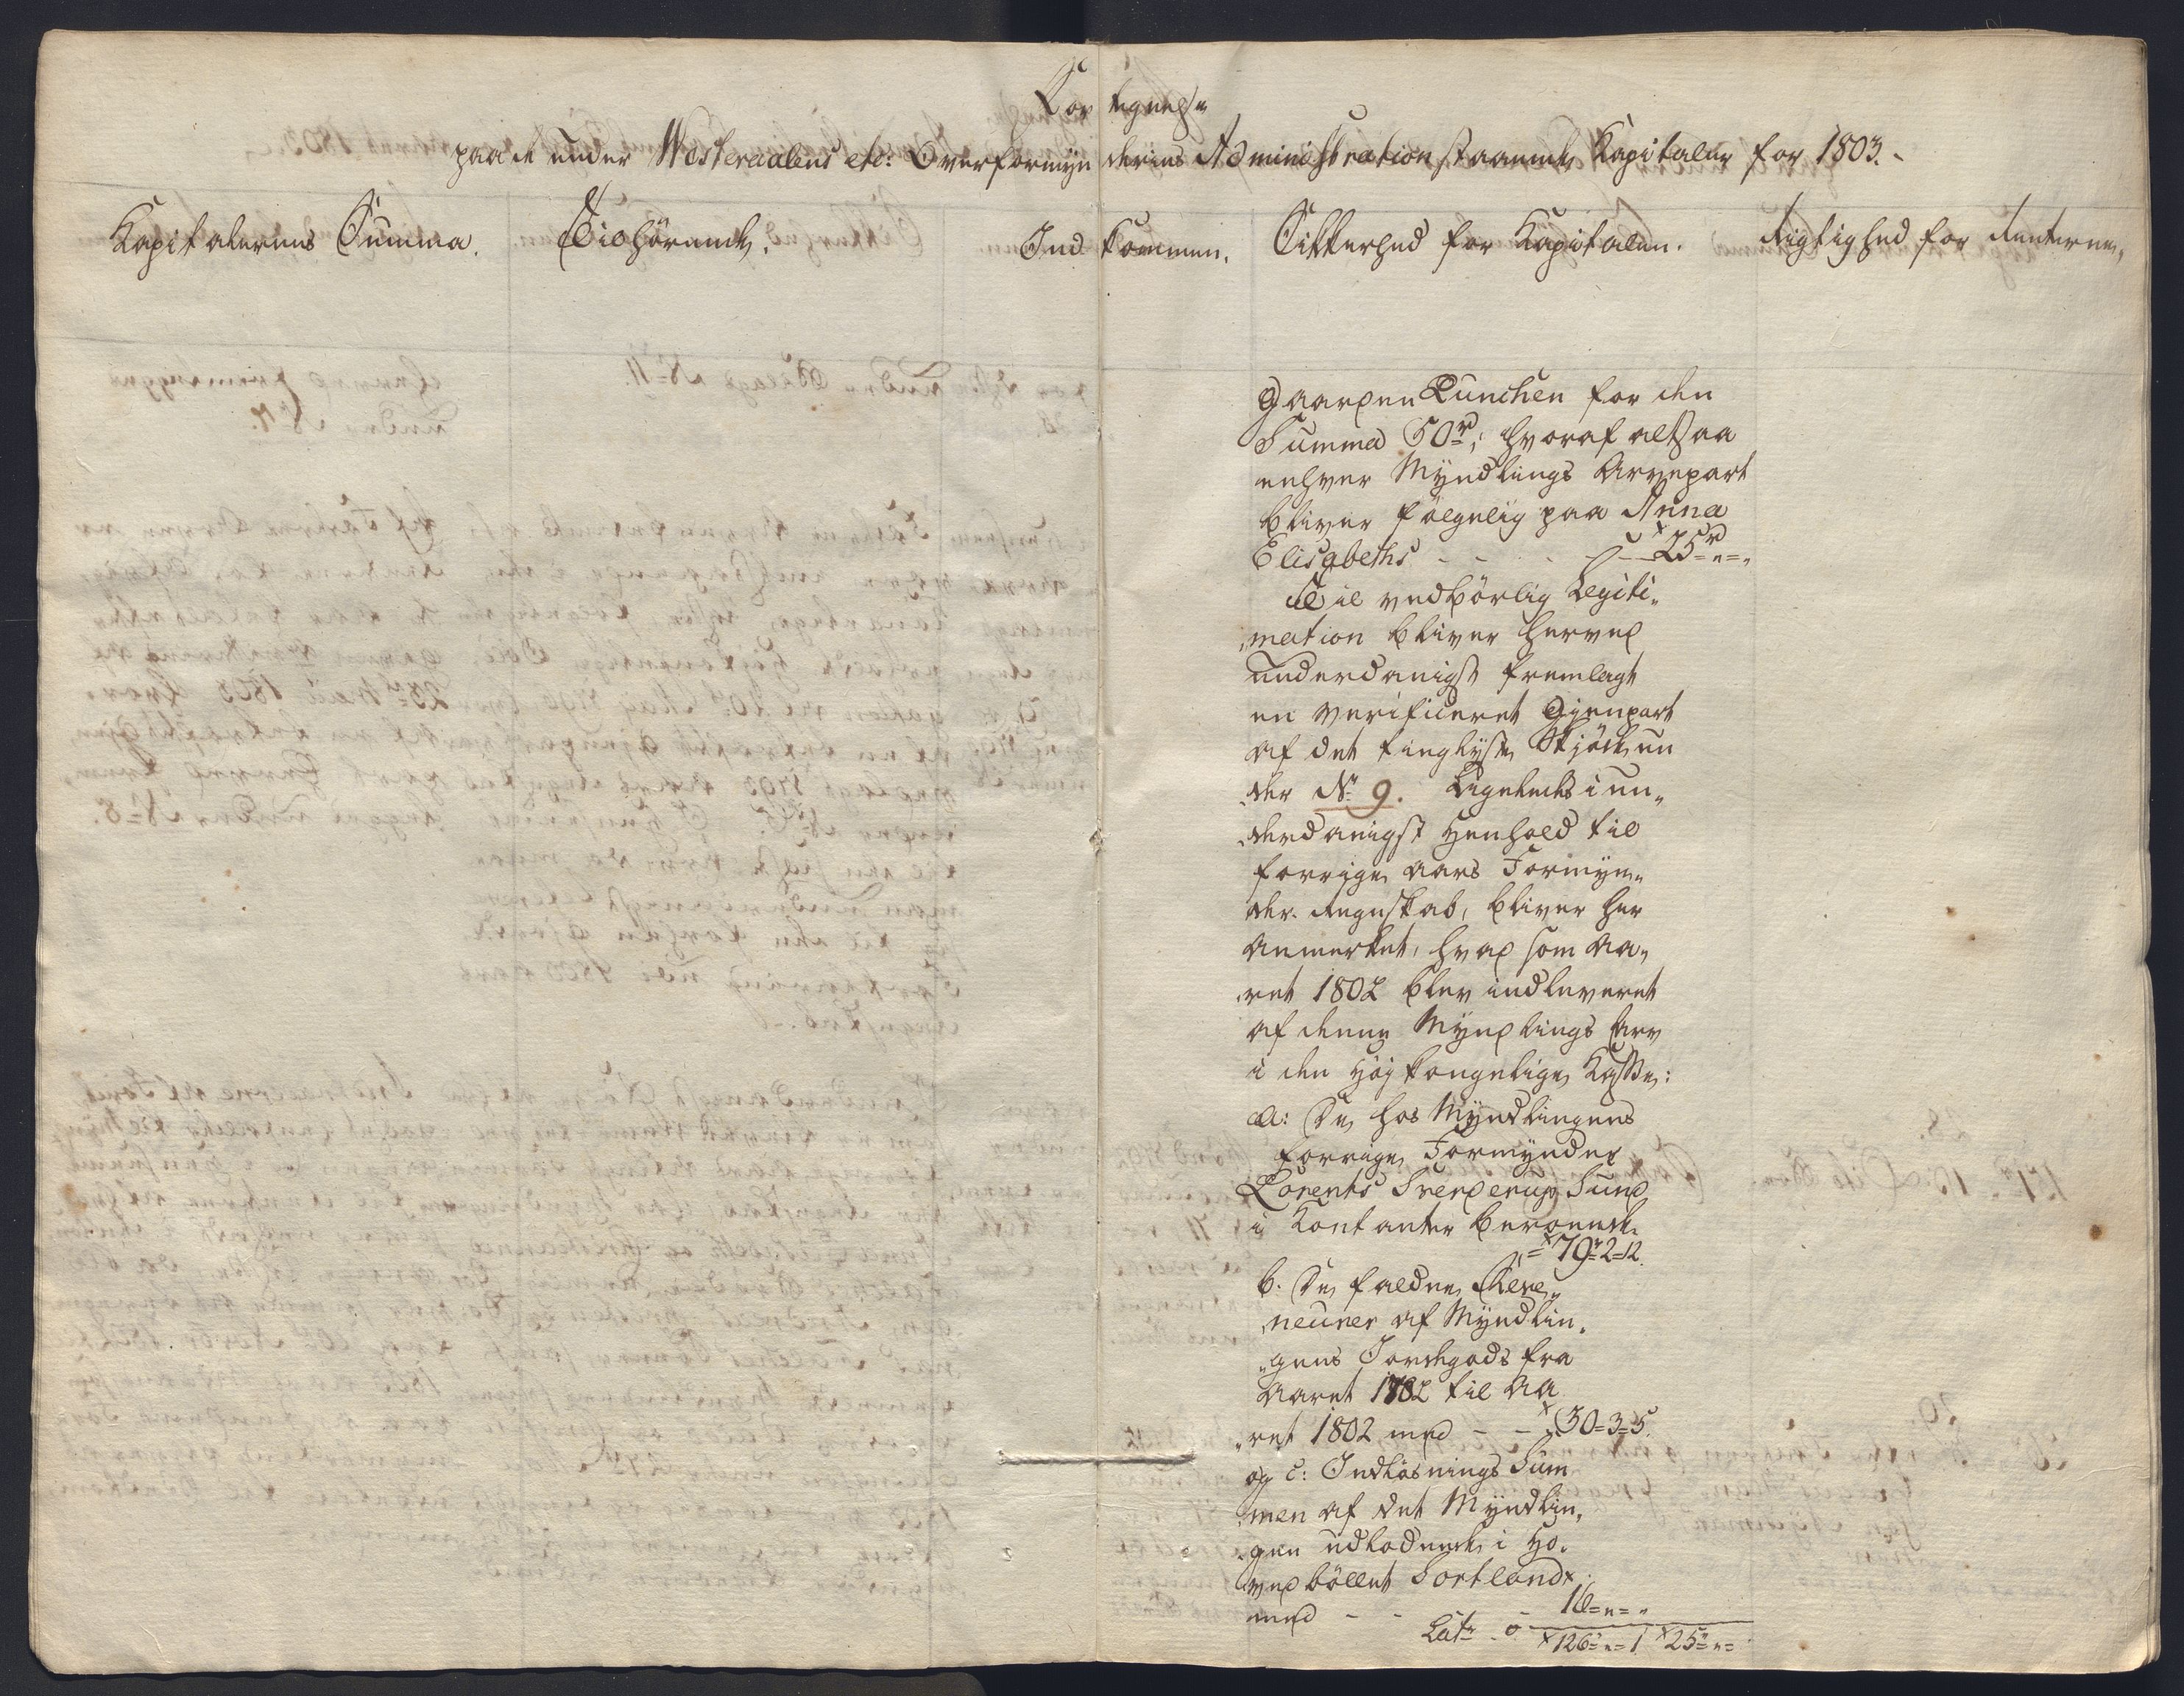 For tegnelse
paa de under Westeraalens etc: Overformyn deries Administration staaende Kapitaler for 1803.-
Kapitalernes Summa. Tilhørende. Ind kommen. Sikkerhed for Kapitalen. Rigtighed for Renterne,
Gaarden Qunchen for den
Summa 50rd; hvoraf altsaa
enhver Myndlings Arvepart
bliver følgelig paa Anna
Elisabeths - - - 25rd " = "
Til vedbørlig Legiti„
„mation bliver herved
underdanigst fremlagt
en verificeret Gjenpart
af det tinglyste Skjøde un
„der No 9. Ligeledes i un„
„derdanigst Henhold til
forrige Aars Formyn„
der-Regnskab, bliver her
anmerket, hvad som Aa„
„ret 1802 blev indleveret
af denne Myndlings Arv
i den Høj kongelige Kasse:
a: De hos Myndlingens
forrige Formynder
Lorents Sverderup Sund
i Kontanter beroende
= 79r=2=12.
b. De faldne
af Myndlin„
„gens Jordegods fra
Aaret 1782 til Aa
„ret 1802 med - - 30=3=5.
og c: Indløsnings Sum
„men af det Myndlin„
„gen udlodnede i Ho„
„vedbøllet Sortland
med - - 16="="
Lats - 126="=1 25="=